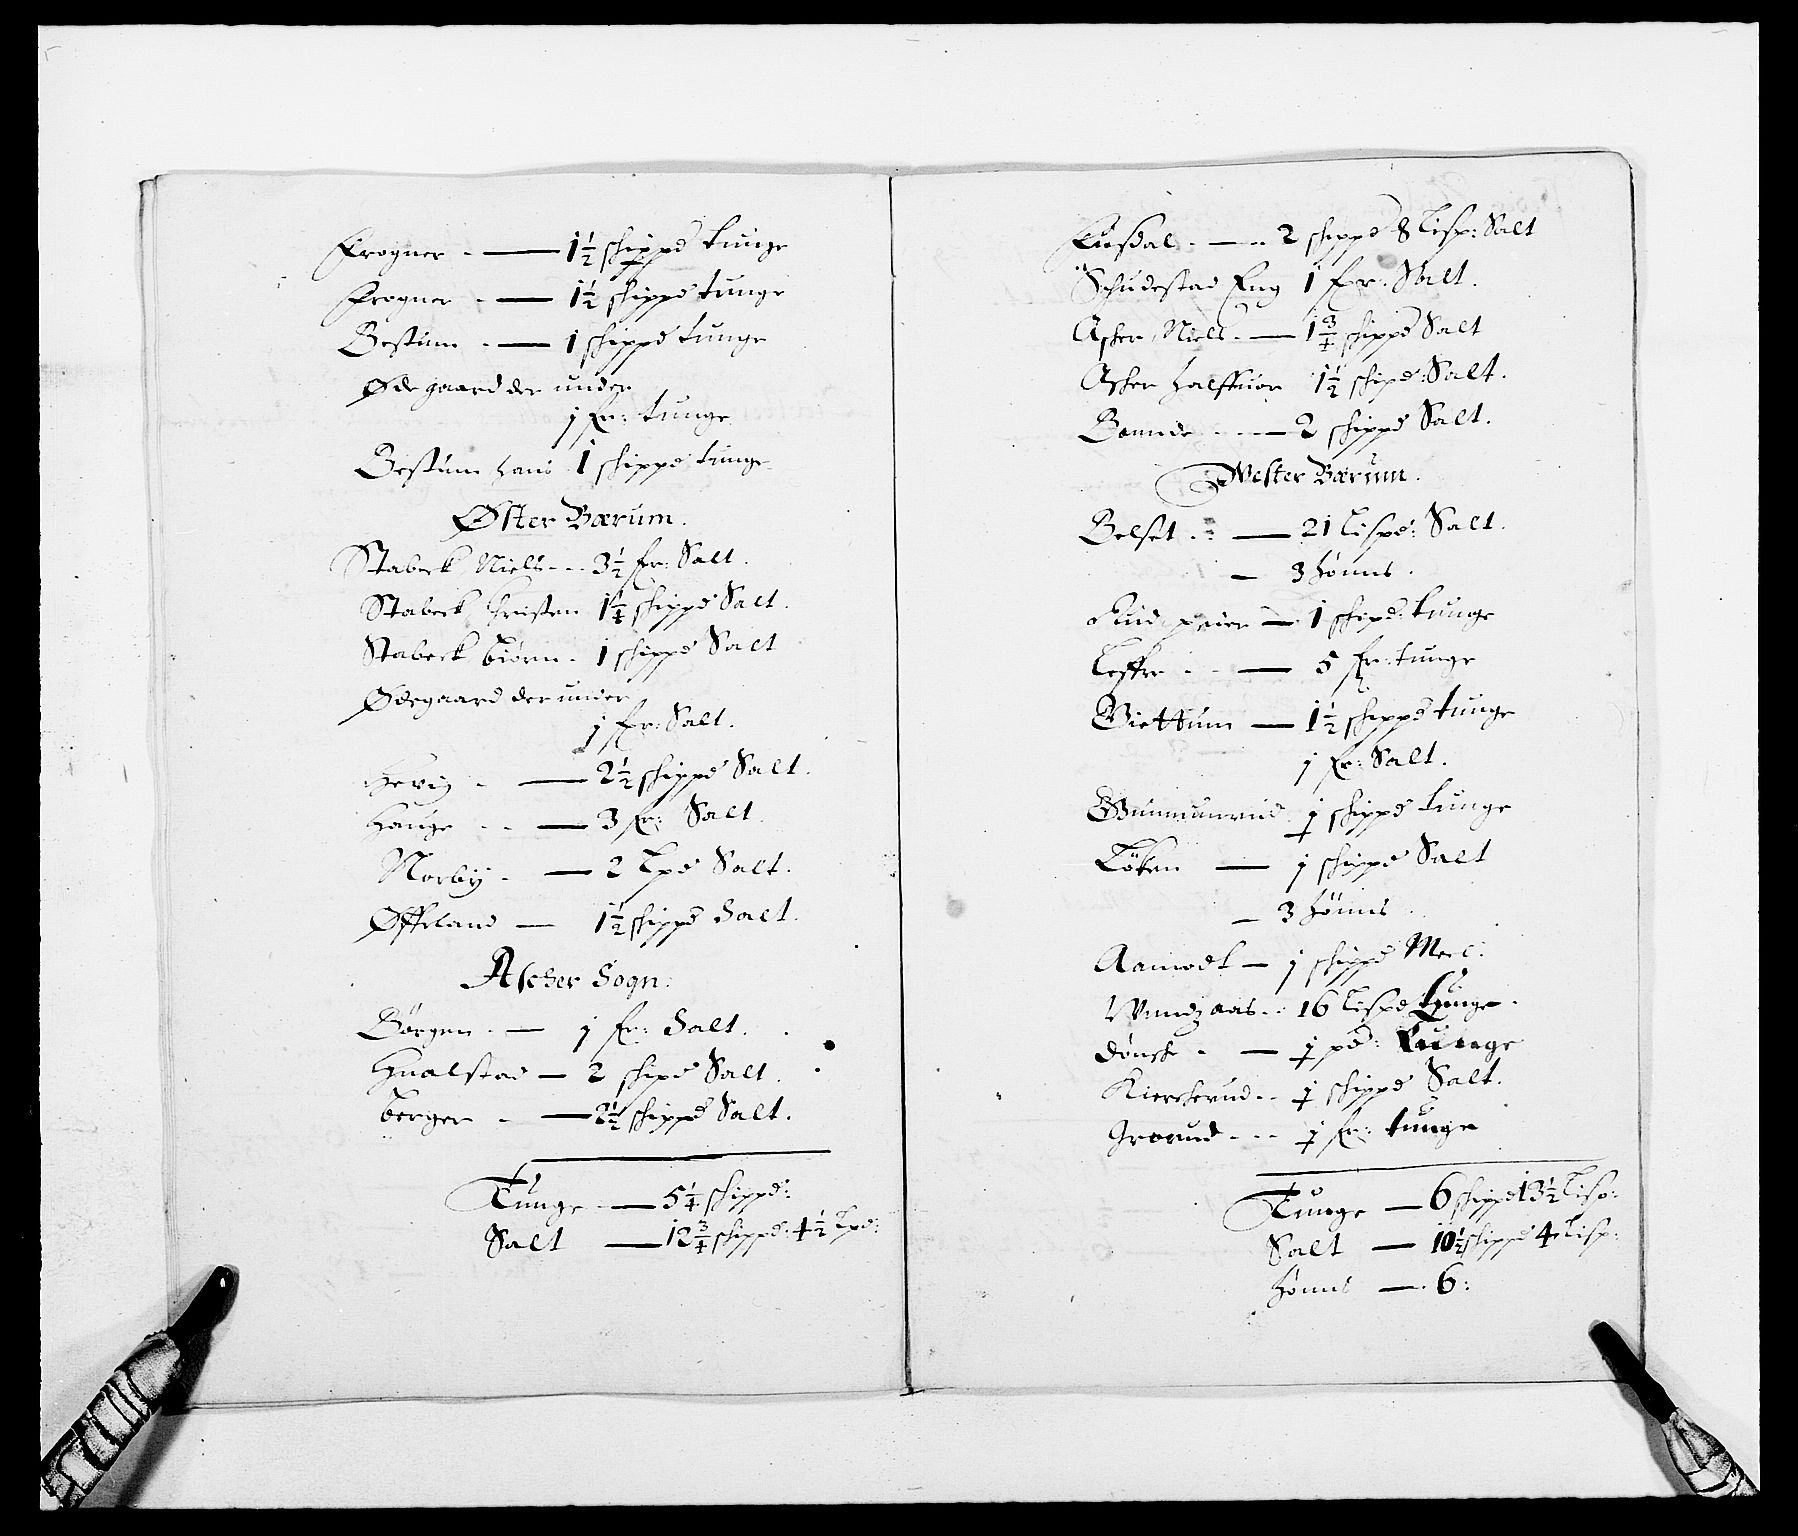 Frogner - — 1½ schippd tunge
Frogner - — 1½ schippd tunge
Bestum - — 1 schippd tunge
Ødegaard der under
1 fr: tunge
Bestum Hans 1 schippd tunge
Øster Bærum.
Stabeck Niels - - 3½ fr: Salt.
Stabeck Christen 1¼ schippd Salt.
Stabeck Biørn - 1 schippd Salt
Ødegaard der under
1 fr: Salt.
Hevig - — 2½ schippd Salt.
Hauge - - — 3 fr: Salt.
Norby - — 2 Lpd Salt.
Øffland — 1½ schippd Salt.
Ascher Sogn:
Børgen - — 1 fr: Salt.
Hualstad — 2 schipd Salt.
Berger - — 2½ schippd Salt.
Tunge — 5¼ schippd:
Salt — 12¾ schippd: 4½ Lpd:
— 2 schippd 8 Lisp: Salt
Schudestad Eng 1 fr: Salt.
Asker Niels - — 1¾ schippd Salt
Asker Halffuor 1½ schipd: Salt.
Bonnde - - — 2 schippd Salt.
Wester Bærum.
Belset - — 21 Lispd: Salt.
— 3 Hønns.
Rud — 1 schipd: tunge
Leffre - - — 5 fr: tunge
Biettum — 1½ schippd tunge
1 fr: Salt.
Gummunrud 1 schippd tunge
Løken — 1 schippd Salt
— 3 Hønns
Aamodt — 1 schippd Meel:
aas - - 16 Lispd tunge.
Dønsk - — 1 pd: tunge
Kierkerud - - 1 schippd Salt.
Grorud - - - 1 fr: tunge
Tunge — 6 schippd 13½ Lisp:
Salt — 10½ schippd 4 Lisp:
Hønns — 6: